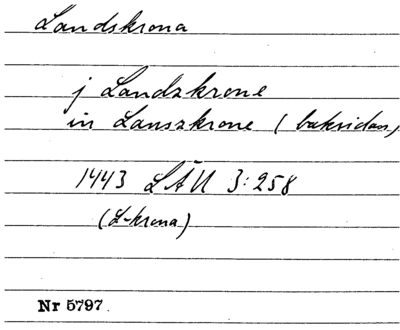 Landskrona
j Landzkrone
in Lanszkrone (baksidan)
1443 LÄU 3:258
(L-krona)
Nr 5797